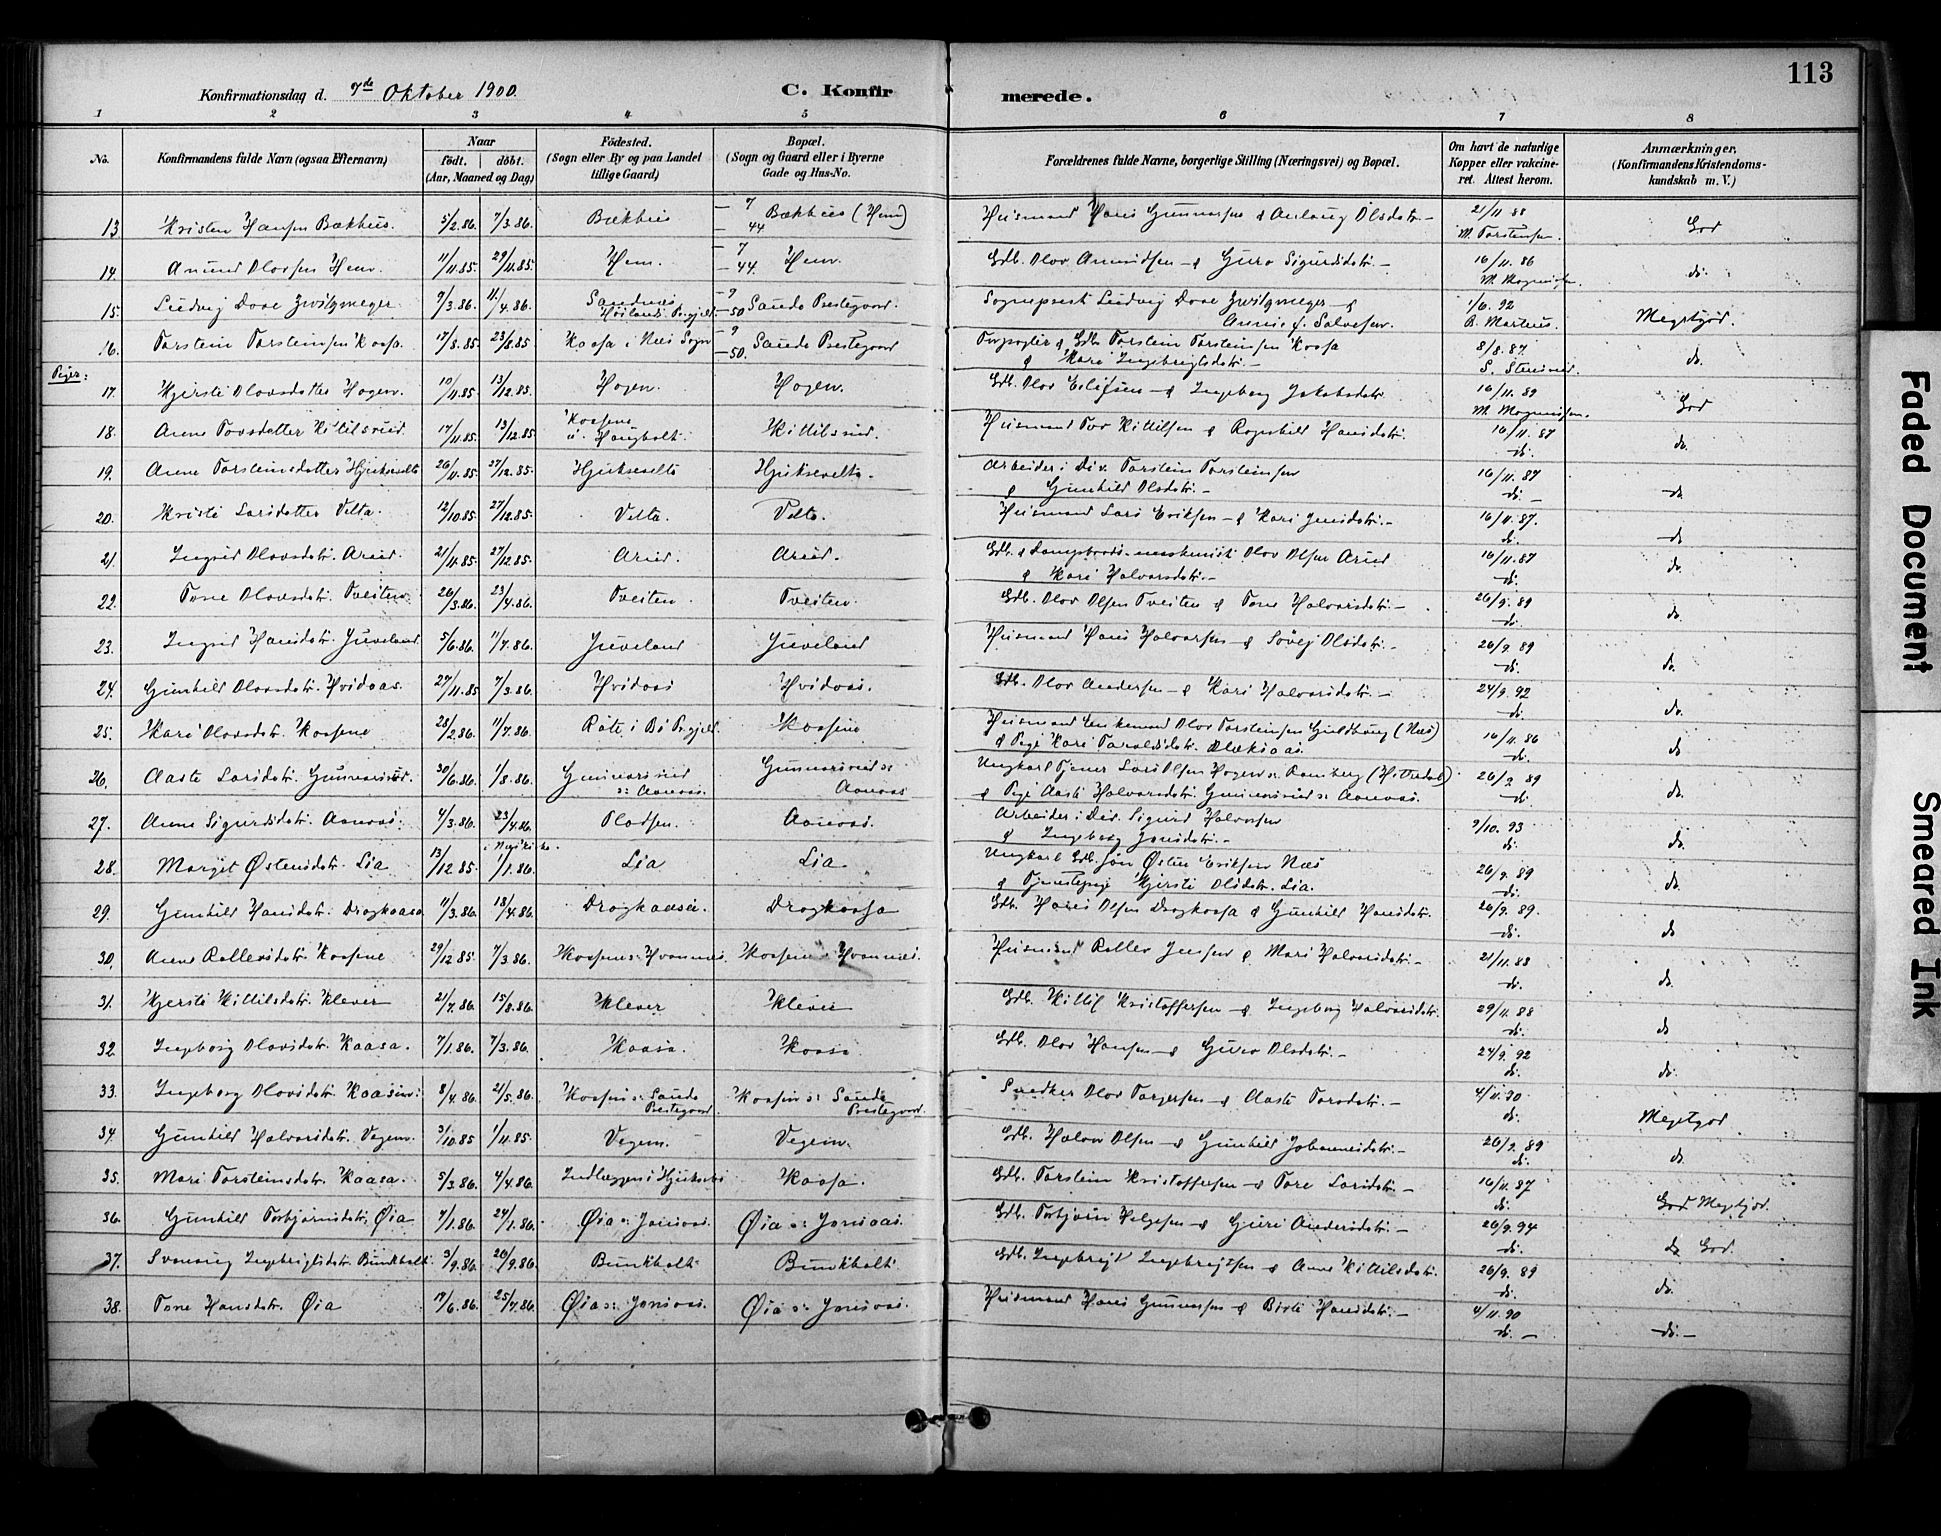 113
Konfirmationsdag d. 7de Oktober 1900.
C. Konfirmerede.
1 2 3 4 5 6 7 8
No.
Konfirmandens fulde Navn (ogsaa Efternavn)
Naar
født. døbt.
(Aar, Maaned og Dag)
Fødested.
(Sogn eller By og paa Landet
tillige Gaard)
Bopæl.
(Sogn og Gaard eller i Byerne
Gade og Hus-No.
Forældrenes fulde Navne, borgerlige Stilling (Næringsvei) og Bopæl.
Om havt de naturlige
Kopper eller vakcine-
ret. Attest herom.
Anmærkninger.
(Konfirmandens Kristendoms-
kundskab m. V.)
13. Kristen Hansen Bækhus. 5/2.86. 7/3.86. Bækhus 7 44 Bækhus (Hem) Husmand Hans Gunnarsen & Anlaug Olsdotr.- 21/11 88 M. Torstensen. God
14. Anund Olavsen Hem. 11/11.85. 29/11.85. Hem. 7 44. Hem. Gdb. Olav Anundsen & Guro Sigurdsdotr.- 16/11. 86 M. Magnussen. do.
15. Ludvig Dose Zwilgmeyer 9/3.86. 11/4.86. Sandnes Høilands Prgjeld. 9 50 Saude Prestegaard. Sogneprest Ludvig Dose Zwilgmeyer & Annie f. Salvesen. 1/6. 92 B. Martens. Megetgod.
16. Torstein Torsteinsen Kaasa. 17/8.85. 23/8.85. Kaasa i Næs Sogn 9 50. Saude Prestegaard Gdb. Torstein Torsteinsen Kaasa & Kari Ingebrigtsdotr.- 8/8.87. do.
Piger:
17. Kjersti Olavsdotter Hogen. 10/11.85. 13/12.85. Hogen. Hogen. Gdb. Olav Eilifsen & Ingeborg Jakobsdotr. 16/11. 89 M. Magnussen. God
18. Anne Tovsdotter Kittilsrud. 17/11.85. 13/12.85. Kaasene u. Haugholt. Kittilsrud. Husmand Tov Kittilsen & Ragnhild Hansdotr. 16/11. 87 do. do.
19. Anne Torsteinsdotter Hjuksevelta 26/11.85. 27/12.85. Hjuksevelta Hjuksevelta. Arbeider i Div. Torstein Torsteinsen & Gunhild Olsdotr.- 16/11. 87 do. do.
20. Kristi Larsdotter Velta. 12/10.85. 27/12.85. Velta. Velta. Husmand Lars Eriksen & Kari Jensdotr.- 16/11.87. do. do.
21. Ingrid Olavsdotr. Arud. 21/11.85. 27/12.85. Arud. Arud. Gdb. & Dampbaads-maskinist Olav Olsen Arud & Kari Halvorsdotr.- 16/11.87 do. do.
22. Tone Olavsdotr. Tveiten 26/3.86. 23/4.86. Tveiten. Tveiten. Gdb. Olav Olsen Tveiten & Tone Halvorsdotr.- 26/9. 89 do. do.
23. Ingrid Hansdotr. Juveland 5/6.86. 11/7.86. Juveland Juveland Husmand Hans Halvorsen & Søvej Olsdotr.- 26/9. 89 do. do.
24. Gunhild Olavsdotr. Hvidaas. 27/11.85. 7/3.86. Hvidaas Hvidaas. Gdb. Olav Andersen & Kari Halvorsdotr.- 24/9. 92 do. do.
25. Kari Olavsdotr. Kaasene 28/2.86. 11/7.86. i Bø Prgjeld. Kaasene Husmand Enkemand Olav Torsteinsen Guldhaug (Næs) & Pige Kari Taraldsdotr. 16/11. 86 do. do.
26. Aaste Larsdotr. Gunnarsrud. 30/6.86. 1/8.86. Gunnarsrud s: Aanaas. Gunnarsrud s: Aanaas Ungkarl Tjener Lars Olsen Hogen s: Ramberg (Hitterdal) & Pige Aaste Halvorsdotr. Gunnarsrud s: Aanaas. 26/9 89 do. do.
27. Anne Sigurdsdotr. Aanaas. 4/3.86. 23/4.86. Pladsen. Aanaas. Arbeider i Div. Sigurd Halvorsen & Ingeborg Jonsdotr.- 9/10. 93 do. do.
28. Margit Østensdotr. Lia 13/12.85. 1/1.86. Lia Lia Ungkarl Gdb.søn Østen Eriksen Næs & Tjenestepige Kjersti Olsdotr. Lia. 26/9. 89 do. do.
29. Gunhild Hansdotr. Dragkaasa 11/3.86. 18/4.86. Dragkaasa. Dragkaasa Gdb. Hans Olsen Dragkaasa & Gunhild Hansdotr. 26/9. 89. do. do
30. Anne Rollevsdotr. Kaasene 29/12.85. 7/3.86. Kaasene s: Hvannæs. Kaasene s: Hvannæs. Husmand Rollev Jensen & Mari Halvorsdotr.- 21/11.88 do. do.
31. Kjersti Kittilsdotr. Klever 21/7.86. 15/8.86. Klever Klever Gdb. Kittil Kristoffersen & Ingeborg Halvorsdotr. 29/11. 88 do. do
32. Ingeborg Olavsdotr. Kaasa. 7/1.86. 7/3.86. Kaasa. Kaasa Gdb. Olav Hansen & Guro Olsdotr.- 24/9. 92 do. do.
33. Ingeborg Olavsdotr. Kaasene: 8/4.86. 2/5.86. Kaasene s: Saude Prestegaard. Kaasene s: Saude Prestegaard. Snedker Olav Torgersen & Aaste Torsdotr.- 4/11.90 do. Megetgod
34. Gunhild Halvorsdotr. Vegem. 3/10.85 1/11.85. Vegem. Vegem. Gdb. Halvor Olsen & Gunhild Johannesdotr.- 26/9. 89 do. do.
35. Mari Torsteinsdotr. Kaasa. 5/3.86. 4/4.86. Indlæggen i Hjuksebø Kaasa. Gdb. Torstein Kristoffersen & Tore Larsdotr.- 16/11.87 do. God Megetgod.
36. Gunhild Torbjørnsdotr. Øia 7/1.86. 24/1.86. Øia s: Jonsaas. Øia s: Jonsaas. Gdb. Torbjørn Helgesen & Guri Andersdotr.- 26/9.94 do. do God.
37. Svanaug Ingebrigtsdotr. Bunkholt 3/9.86. 26/9.86. Bunkholt Bunkholt Gdb. Ingebrigt Ingebrigtsen & Anne Kittilsdotr. 26/9. 89 do. do.
38. Tone Hansdotr. Øia 17/6.86. 25/7.86. Øia s: Jonsaas. Øia s: Jonsaas. Husmand Hans Gunnarsen & Birte Hansdotr.- 4/11.90 do.- do.-
Faded Document
Smeared Ink